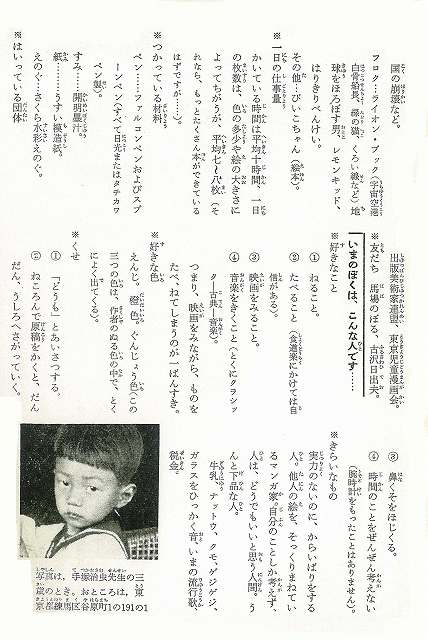 国の崩壊など。
フロク…ライオン・ブック(宇宙空港
白骨船長、緑の猫、くろい線など)地
球をほろぼす男、レモンキッド、
はりきりべんけい。
その他…ぴいこちゃん(絵本)。
※一日の仕事量
かいている時間は平均十時間、一日
の枚数は、色の多少や絵の大きさに
よってちがうが、平均七~八枚(そ
れなら、もっとたくさん本ができている
はずですが……)。
※つかっている材料
ペン……ファルコンペンおよびスプ
ーンペン(すべて日光またはタチカワ
ペン製)。
すみ……開明墨汁。
紙………うすい模造紙。
えのぐ…さくら水彩えのぐ。
※はいっている団体
出版美術家連盟、東京児童漫画会。
※友だち 馬場のぼる、古沢日出夫。
いまのぼくは、こんな人です……
※好きなこと
① ねること。
② たべること(食道楽にかけては自
信がある)。
③ 映画をみること。
④ 音楽をきくこと(とくにクラシッ
ク―古典―音楽)。
つまり、映画をみながら、ものを
たべ、ねてしまうのが一ばんすき。
※好きな色
えんじ。橙色。ぐんじょう色(この
三つの色は、作者のぬる色の中で、とく
によく出てくる)。
※くせ
① 「どうも」とあいさつする。
② ねころんで原稿をかくと、だん
だん、うしろへさがっていく。
③ 鼻くそをほじくる。
④ 時間のことをぜんぜん考えない
(腕時計をもったことはありません)。
※きらいなもの
実力のないのに、からいばりをする
人。他人の絵を、そっくりまねてい
るマンガ家。自分のことしか考えず、
人は、どうでもいいと思う人間。う
んと下品な人。
牛乳、ナットウ、クモ、ゲジゲジ、
ガラスをひっかく音、いまの流行歌、
税金。
写真は、手塚治虫先生の三
歳のとき。おところは、東
京都練馬区谷原町1の191の1